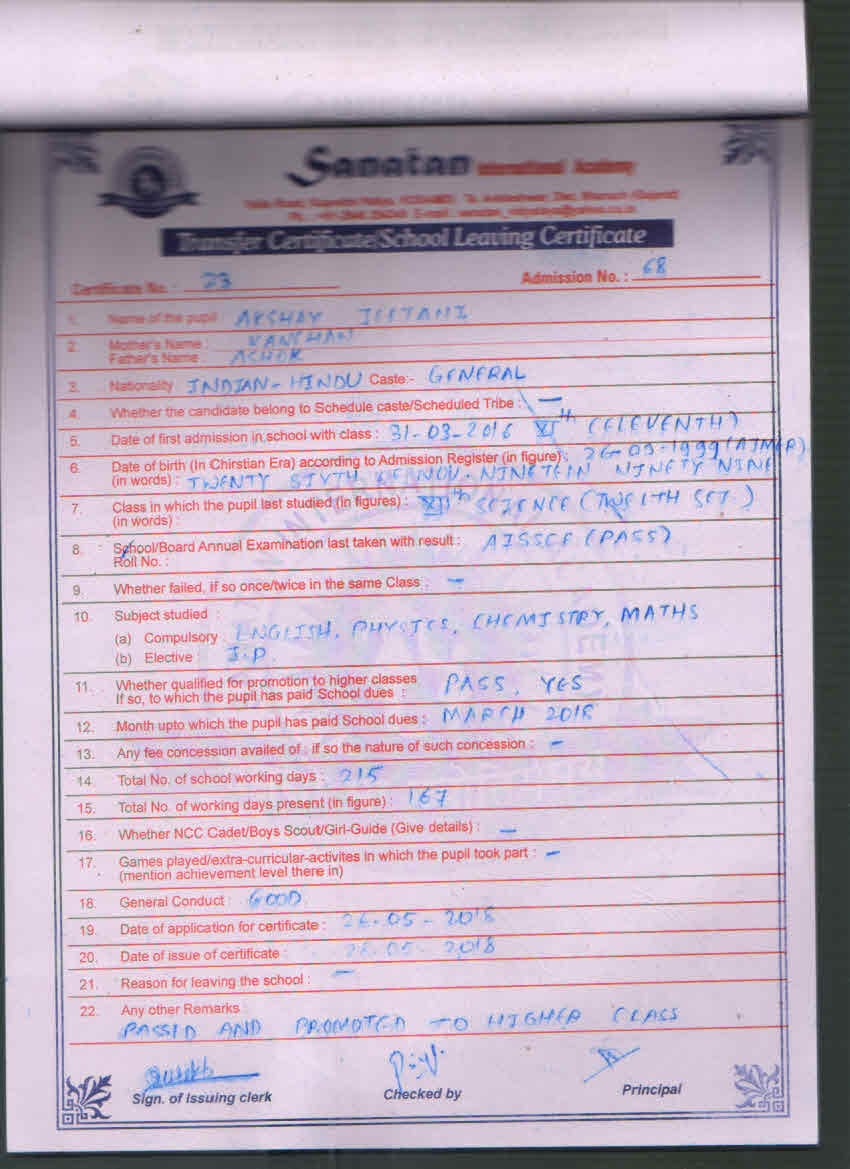 Sanatan International Academy
Transfer Certificate/School Leaving Certificate
Certificate No. : 23 Admission No. : 68
1. Name of the pupil AKSHAY
2. Mother's Name :
Father's Name : ASHOK
3. Nationality INDIAN-HINDU Caste:- GENERAL
4. Whether the candidate belong to Schedule caste/Scheduled Tribe : —
5. Date of first admission in school with class : 31-03-2016 XIth (ELEVENTH)
6. Date of birth (In Chirstian Era) according to Admission Register (in figure) :
(in words) : TWENTY NINETY NINE
7. Class in which the pupil last studied (in figures) : XIIth
(in words) :
8. School/Board Annual Examination last taken with result : AISSCE (PASS)
Roll No. :
9. Whether failed, if so once/twice in the same Class : —
10. Subject studied :
(a) Compulsory : ENGLISH, PHYSICS, CHEMISTRY, MATHS
(b) Elective : I.P
11. Whether qualified for promotion to higher classes PASS, YES
If so, to which the pupil has paid School dues :
12. Month upto which the pupil has paid School dues : MARCH 2018
13. Any fee concession availed of : if so the nature of such concession : —
14. Total No. of school working days : 215
15. Total No. of working days present (in figure) : 167
16. Whether NCC Cadet/Boys Scout/Girl-Guide (Give details) : —
17. Games played/extra-curricular-activites in which the pupil took part : —
(mention achievement level there in)
18. General Conduct : GOOD
19. Date of application for certificate : 26-05-2018
20. Date of issue of certificate : 26-05-2018
21. Reason for leaving the school : —
22. Any other Remarks :
PASSED AND PROMOTED TO HIGHER CLASS
Sign. of Issuing clerk Checked by Principal